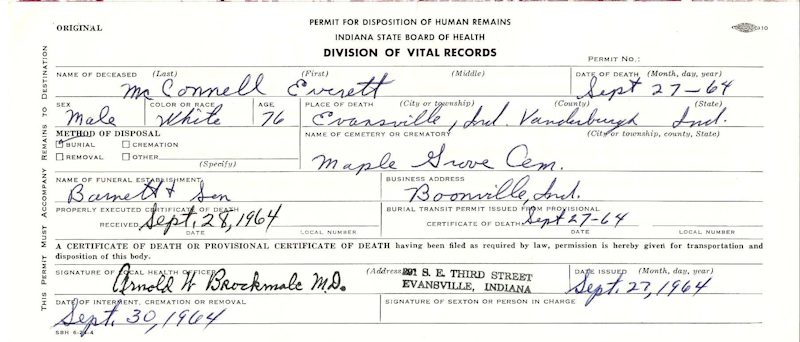 ORIGINAL
PERMIT FOR DISPOSITION OF HUMAN REMAINS
INDIANA STATE BOARD OF HEALTH
DIVISION OF VITAL RECORDS
10
PERMIT NO.:
THIS PERMIT MUST ACCOMPANY REMAINS TO DESTINATION
NAME OF DECEASED (Last) (First) (Middle) DATE OF DEATH (Month, day, year)
McConnell Everett Sept 27-64
SEX COLOR OR RACE AGE PLACE OF DEATH (City or township) (County) (State)
Male White 76 Evansville, Ind. Vanderburgh Ind.
METHOD OF DISPOSAL NAME OF CEMETERY OR CREMATORY (City or township, county, State)
☑ BURIAL ☐ CREMATION
☐ REMOVAL ☐ OTHER
(Specify)
Maple Grove Cem.
NAME OF FUNERAL ESTABLISHMENT BUSINESS ADDRESS
Barnett & Son Boonville, Ind.
PROPERLY EXECUTED CERTIFICATE OF DEATH BURIAL TRANSIT PERMIT ISSUED FROM PROVISIONAL
RECEIVED Sept. 28, 1964 CERTIFICATE OF DEATH Sept 27-64
DATE LOCAL NUMBER DATE LOCAL NUMBER
A CERTIFICATE OF DEATH OR PROVISIONAL CERTIFICATE OF DEATH having been filed as required by law, permission is hereby given for transportation and
disposition of this body.
SIGNATURE OF LOCAL HEALTH OFFICER (Address) DATE ISSUED (Month, day, year)
Arnold W Brockmole M.D. 201 S. E. THIRD STREET
EVANSVILLE, INDIANA Sept. 27, 1964
DATE OF INTERMENT, CREMATION OR REMOVAL SIGNATURE OF SEXTON OR PERSON IN CHARGE
Sept. 30, 1964
SBH 6-24-4